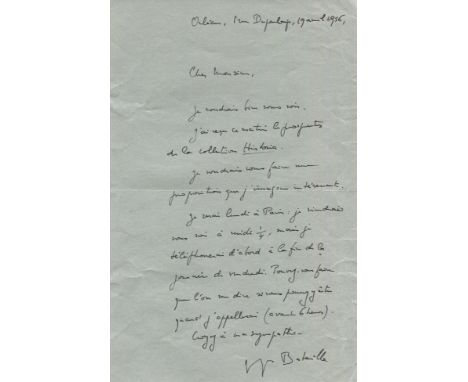 Orléans, 1 rue Dupanloup, 19 avril 1956,
Cher Monsieur,
Je voudrais bien vous voir.
J'ai reçu ce matin le prospectus
de la collection Historia.
Je voudrais vous faire une
proposition que j'imagine intéressant.
Je serai lundi à Paris : je viendrais
vous voir à midi 1/4, mais je
téléphonerai d'abord à la fin de la
journée de vendredi. Pouvez-vous faire
que l'on me dise si vous pouvez y être
quand j'appellerai (avant 6 heures).
Croyez à ma sympathie.
Bataille